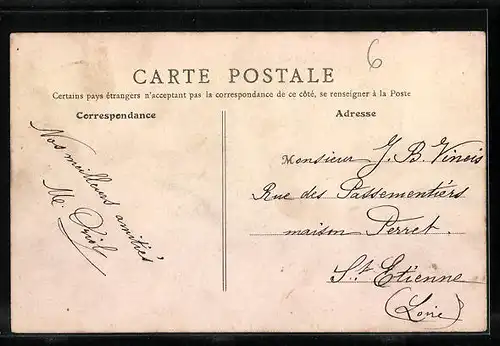 6
CARTE POSTALE
Certains pays étrangers n'acceptant pas la correspondance de ce côté, se renseigner à la Poste
Correspondance
Adresse
Nos meilleures amitiés
M.
Monsieur J. B. Vinois
Rue des Passementiers
maison Perret.
St Etienne
(Loire)